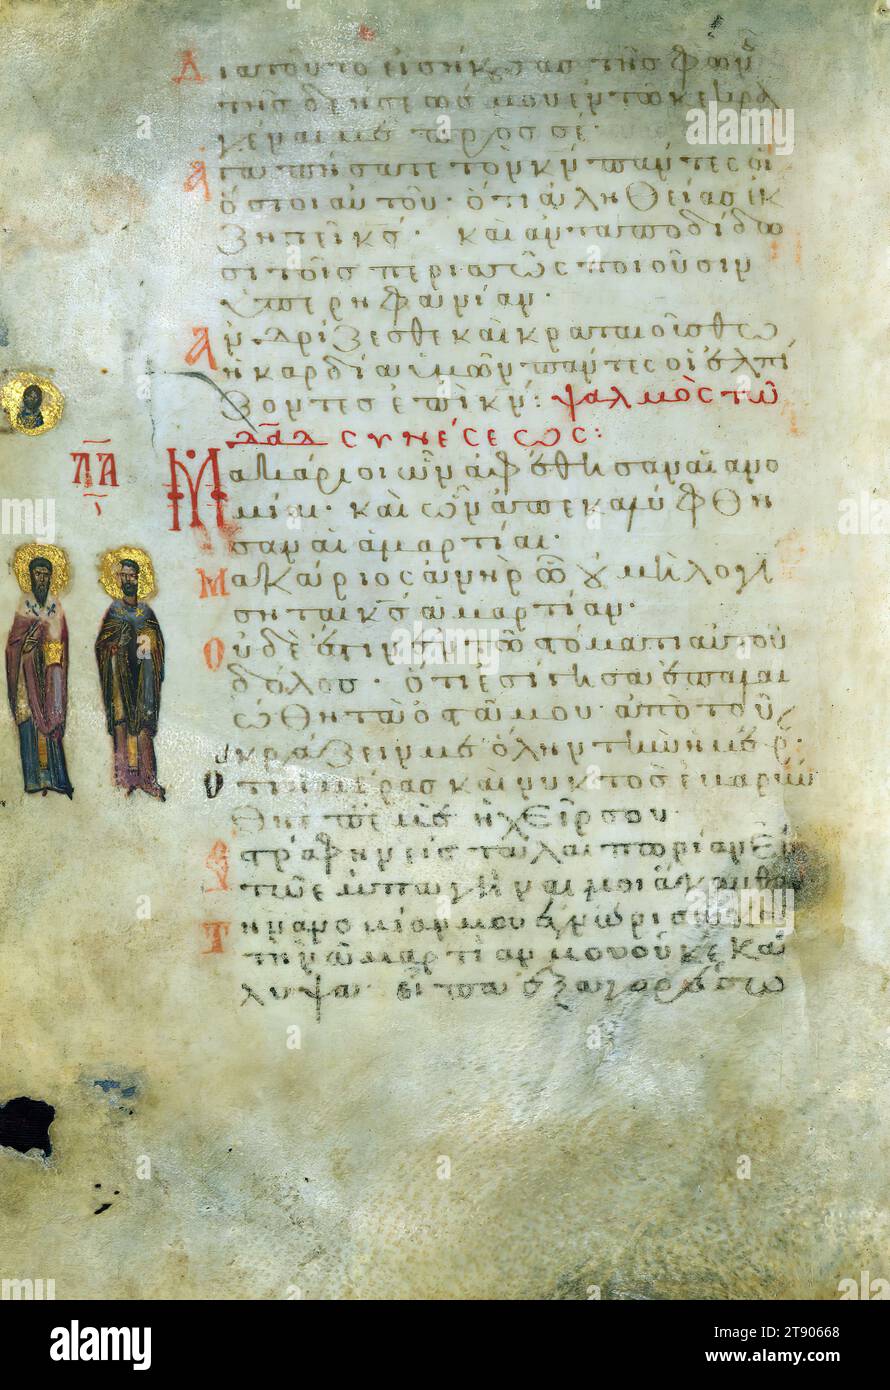 Διατοῦτο εἰσήκουσας τῆς φωνῆ
τῆς δεήσεώς μου ἐν τῶ κεκρα
γέναι με πρὸς σέ·
Ἀγαπήσατε τὸν κν πάντες οἱ
ὅσιοι αὐτοῦ· ὅτι ἀληθείας ἐκ
ζητεῖ κς· καὶ ἀνταποδίδω
σι τοῖς περισσῶς ποιοῦσιν
ὑπερηφανίαν·
Ἀνδρίζεσθε καὶ κραταιούσθω
ἡ καρδία ὑμῶν πάντες οἱ ἐλπί
ζοντες ἐπὶ κν: ψαλμὸς τῶ
δαδ συνέσεως:
ΛΑ
Μακάριοι ὧν ἀφέθησαν αἱ ανο
μίαι· καὶ ὧν ἀπεκαλύφθη
σαν αἱ ἁμαρτίαι·
Μακάριος ἀνὴρ ὧ οὐ μὴ λογί
σηται κς ἁμαρτίαν·
Οὐδὲ ἔστιν ἐν τῶ στόματι αὐτοῦ
δόλος· ὅτι ἐσίγησα ἐπαλαι
ώθη τὰ ὀστᾶ μου ἀπὸ τοῦ
κράζειν με ὅλην τὴν ἡμέρ·
Ὅτι ἡμέρας καὶ νυκτὸς ἐβαρύν
θη ἐπ ἐμὲ ἡ χείρ σου
Ἐστράφην εἰς ταλαιπωρίαν ἐν
τῶ ἐμπαγῆναί μοι ἄκανθαν
Τὴν ἀνομίαν μου ἐγνώρισα καὶ
τὴν ἁμαρτίαν μου οὐκ ἐκά
λυψα· εἶπα ἐξαγορεύσω
alamy
Image ID: 2T90668
www.alamy.com